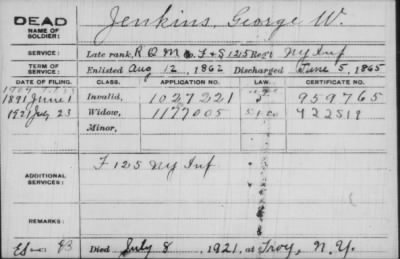 DEAD
NAME OF
SOLDIER:
Jenkins, George W.
SERVICE:
Late rank, R Q M Co. F + S 125 Regt NY Inf
TERM OF
SERVICE:
Enlisted Aug 12, 1862 Discharged June 5, 1865
DATE OF FILING. CLASS. APPLICATION NO. LAW. CERTIFICATE NO.
1891 June 1 Invalid, 1027221 959765
1921 July 23 Widow, 1177005
Minor,
ADDITIONAL
SERVICES:
F 125 NY Inf
REMARKS:
Died July 8, 1921, at Troy, N.Y.